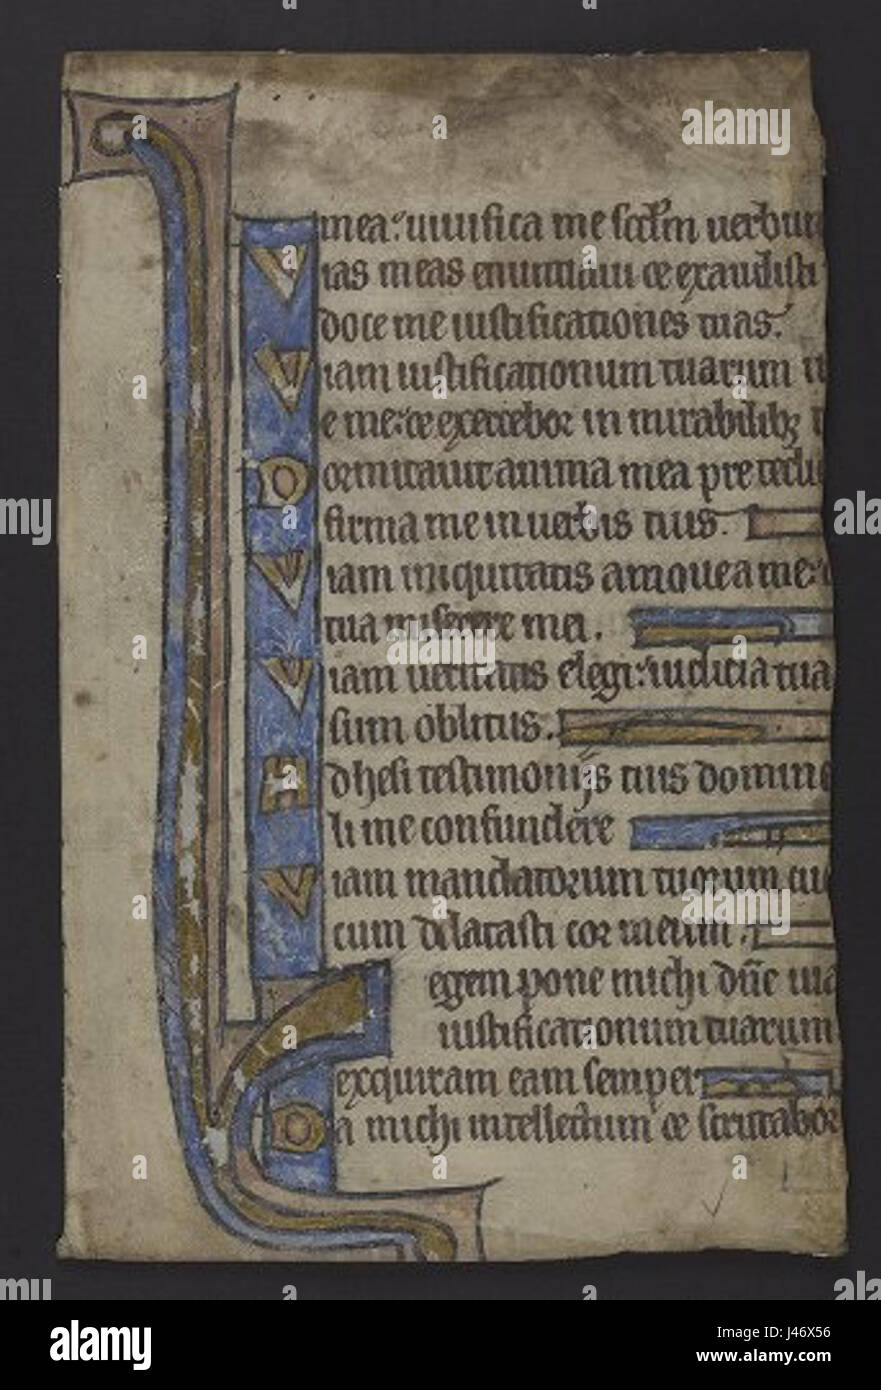 mea: uiuifica me scd'm uerbum
Vias meas enuntiaui ce exaudisti
doce me iustificationes tuas:
Viam iustificationum tuarum i
e me: ce exercebor in mirabilibꝫ t
Dormitauit anima mea pre tedi
firma me in uerbis tuis.
Viam iniquitatis amoue a me:
tua miserere mei.
Viam ueritatis elegi: iudicia tua
sum oblitus.
Adhesi testimonijs tuis domine
li me confundere
Viam mandatorum tuorum cu
cum dilatasti cor meum.
Legem pone michi dñe uia
iustificationum tuarum
exquiram eam semper
Da michi intellectum ce scrutabor
alamy stock photo
alamy
J46X56
www.alamy.com